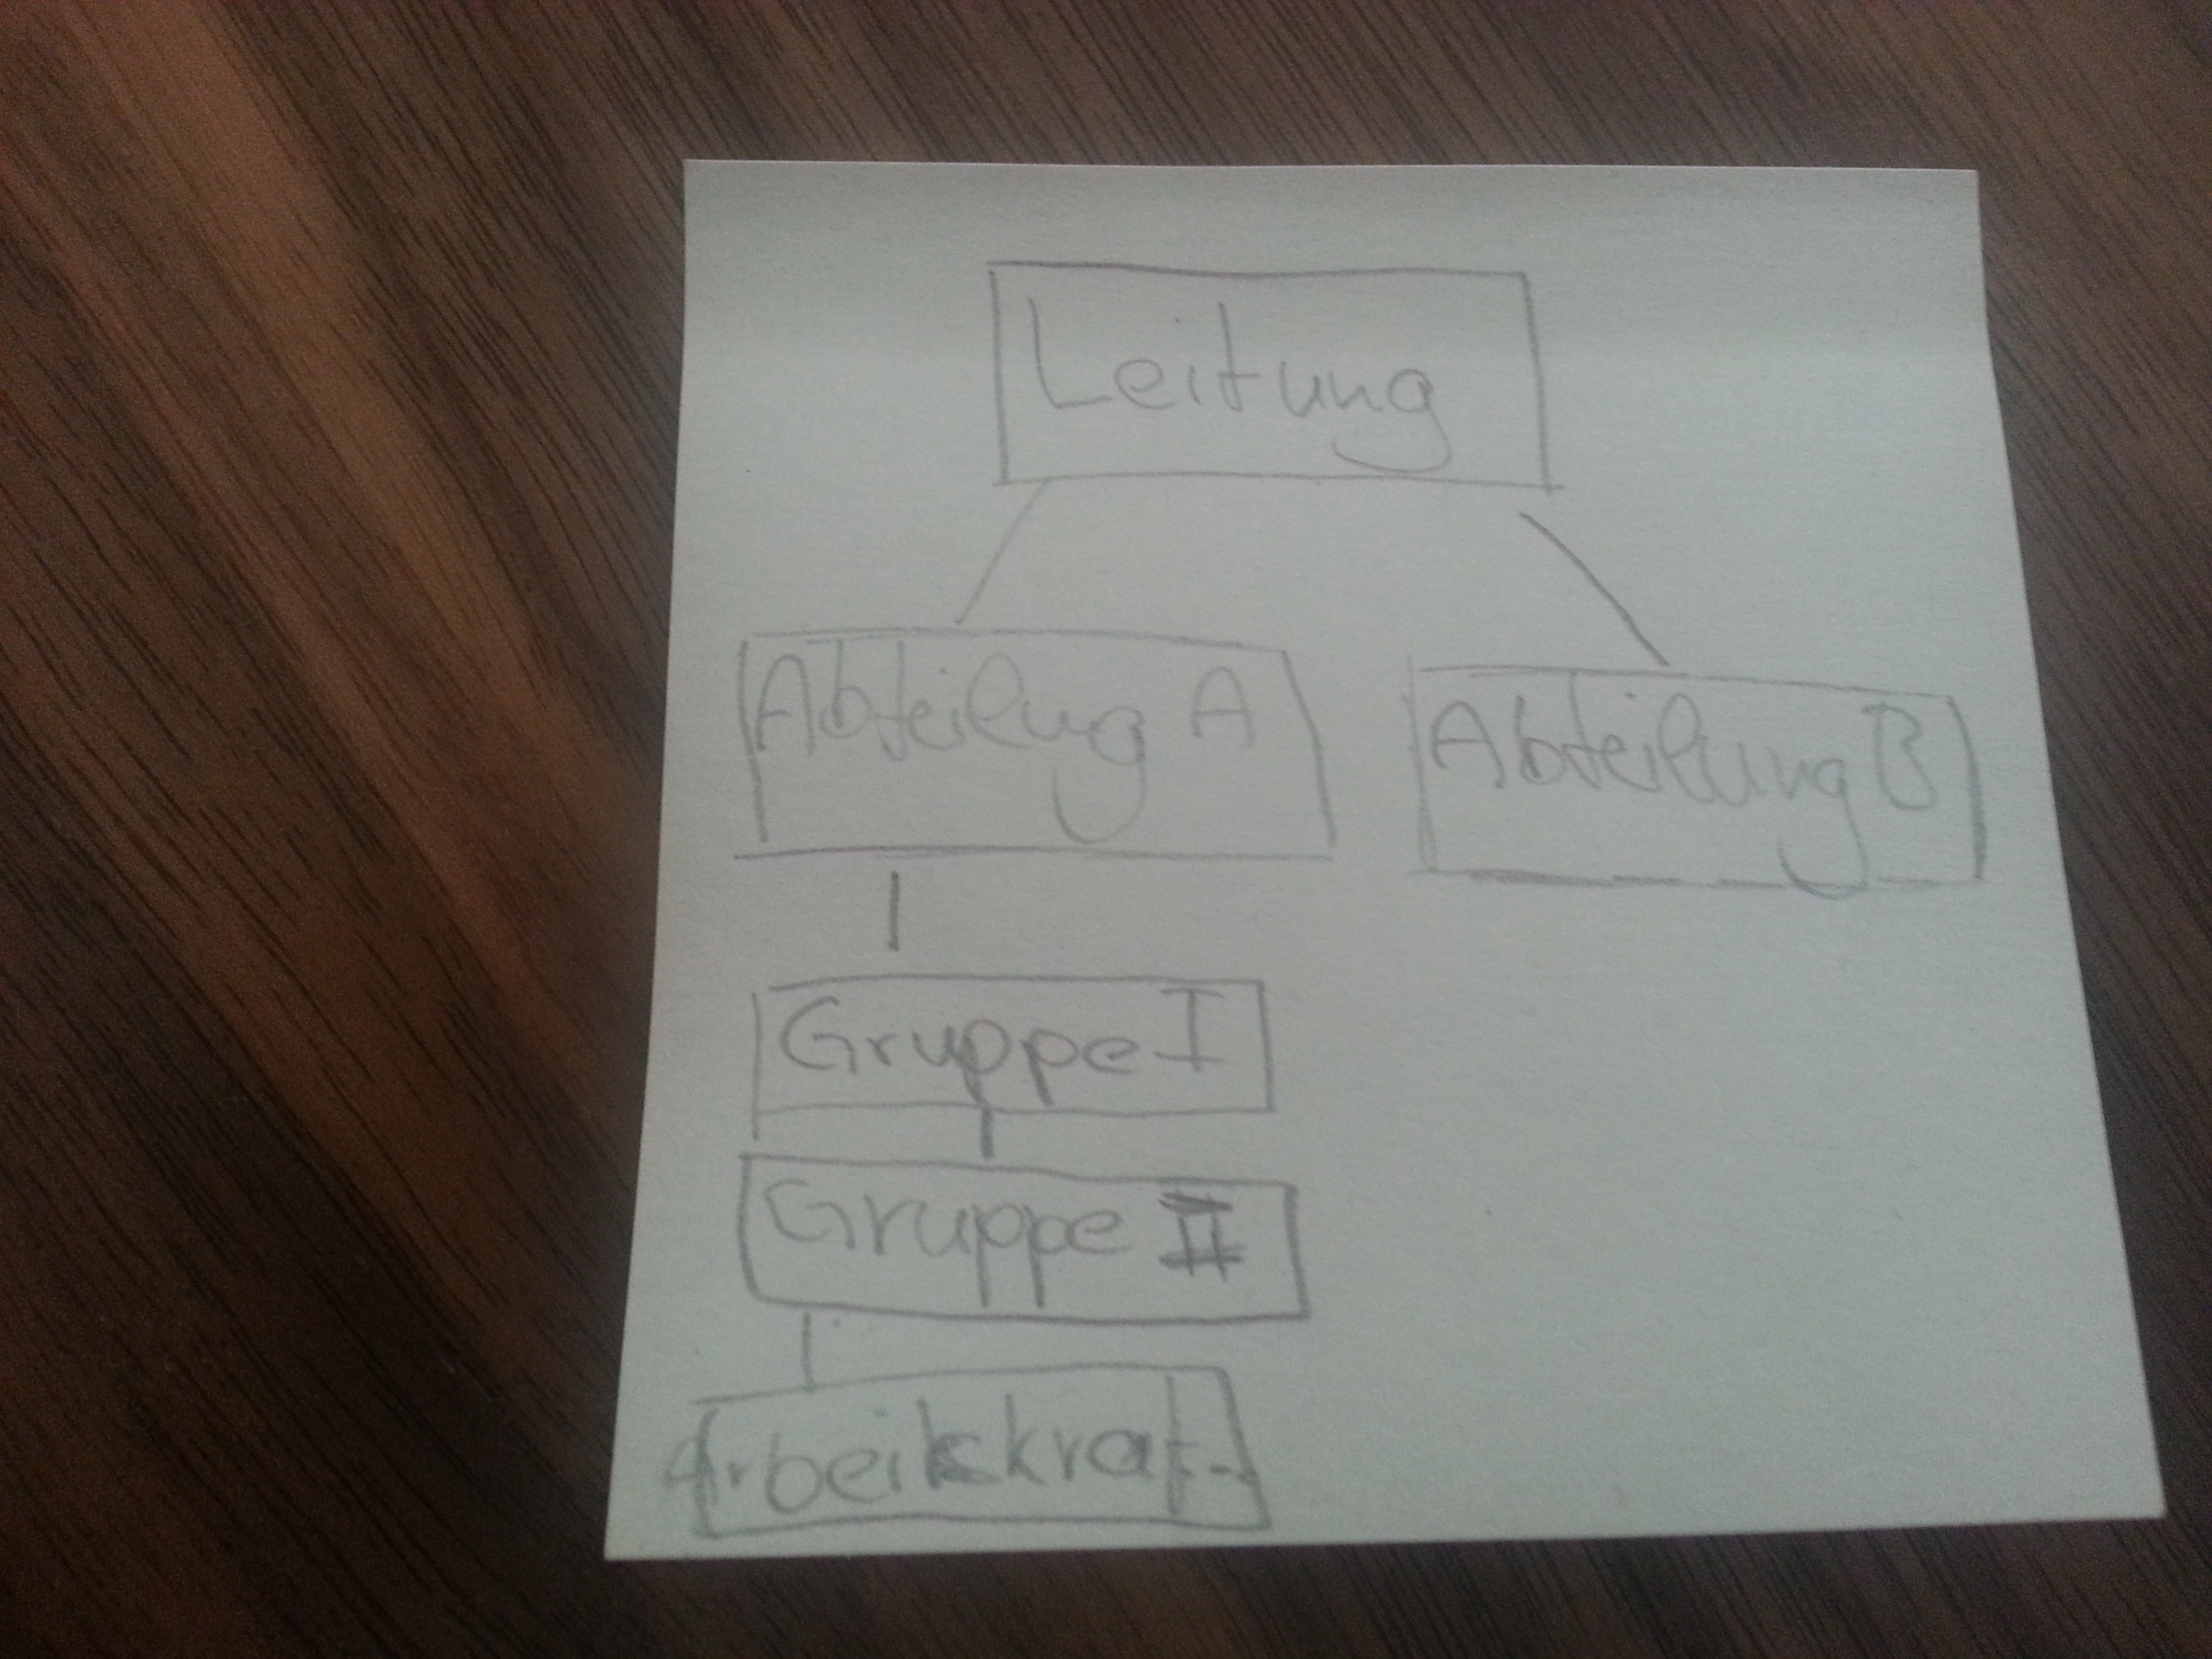 Leitung
Abteilug A
Abteilung B
Gruppe I
Gruppe II
Arbeitskraft